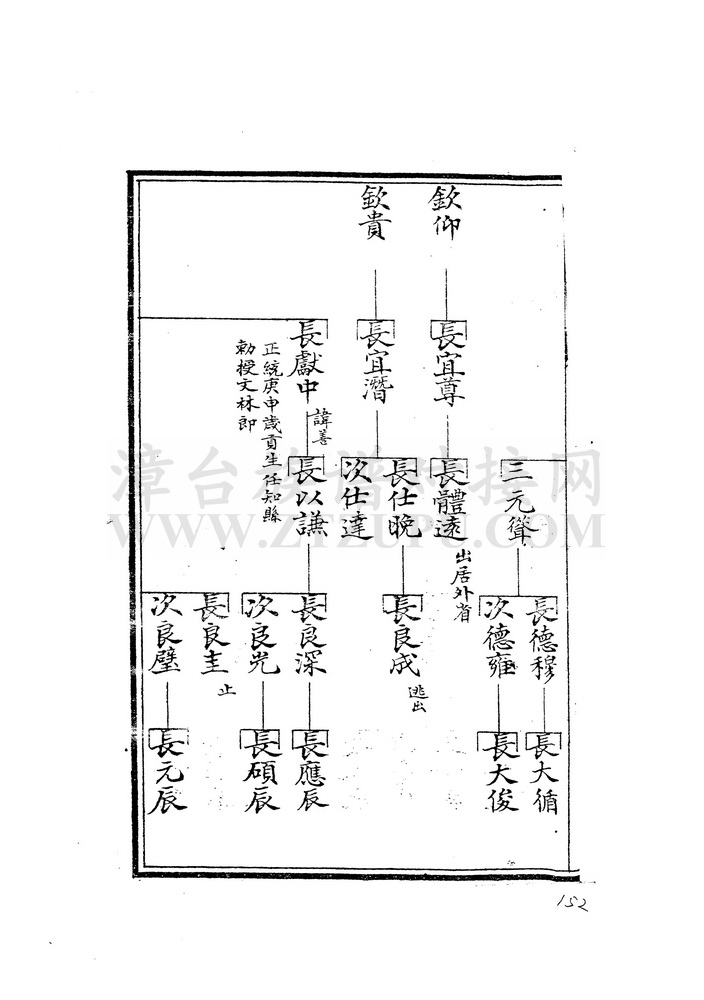 欽仰
欽貴
長宜尊
長宜潛
長獻中
諱善
正統庚申歲貢生任知縣
勅授文林郎
三元聳
長體遠
出居外省
長仕晚
次仕達
長以謙
長德穆
次德雍
長良成
逃出
長良深
次良光
長良圭
止
次良璧
長大循
長大俊
長應辰
長碩辰
長元辰
漳台族谱对接网
WWW.ZTZUPU.COM
152